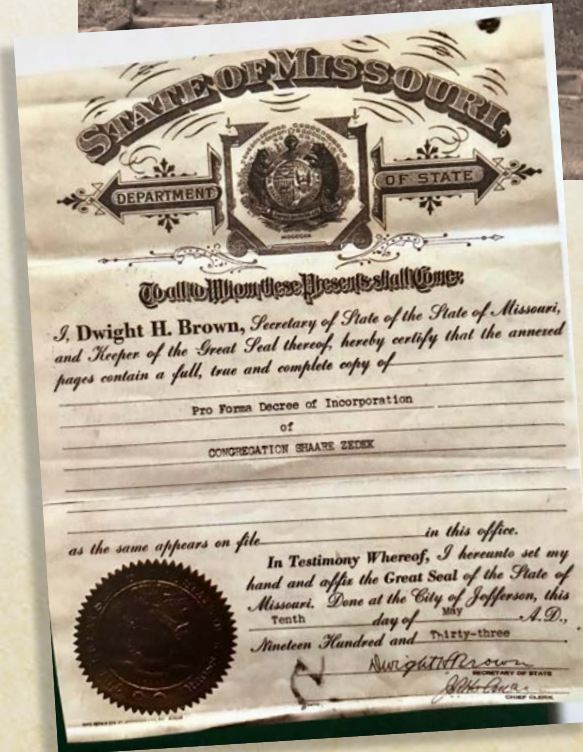 STATE OF MISSOURI
DEPARTMENT OF STATE
To all to Whom these Presents shall Come:
I, Dwight H. Brown, Secretary of State of the State of Missouri,
and Keeper of the Great Seal thereof, hereby certify that the annexed
pages contain a full, true and complete copy of
Pro Forma Decree of Incorporation
of
CONGREGATION SHAARE ZEDEK
as the same appears on file in this office.
In Testimony Whereof, I hereunto set my
hand and affix the Great Seal of the State of
Missouri. Done at the City of Jefferson, this
Tenth day of May A.D.,
Nineteen Hundred and Thirty-three
Dwight H Brown
SECRETARY OF STATE
CHIEF CLERK